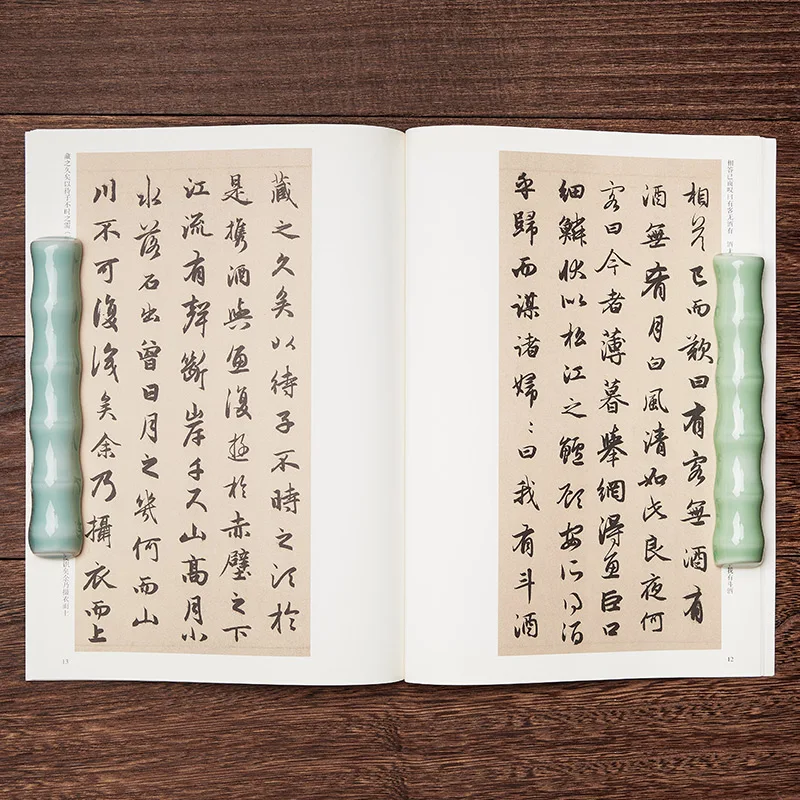 相答已而歎曰有客無酒有
酒無肴月白風清如此良夜何
客曰今者薄暮舉網得魚巨口
細鱗狀似松江之鱸顧安所得酒
乎歸而謀諸婦〻曰我有斗酒
12
藏之久矣以待子不時之須於
是攜酒與魚復遊於赤壁之下
江流有聲斷岸千尺山高月小
水落石出曾日月之幾何而山
川不可復識矣余乃攝衣而上
13